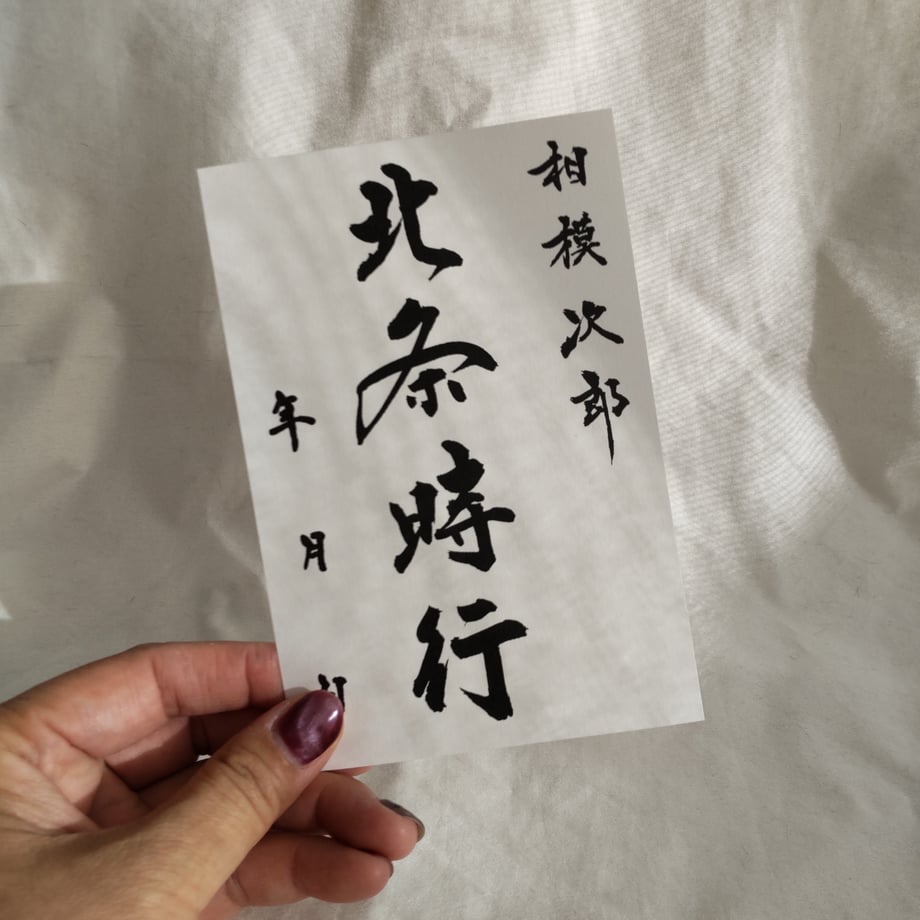 相模次郎
北条時行
年月